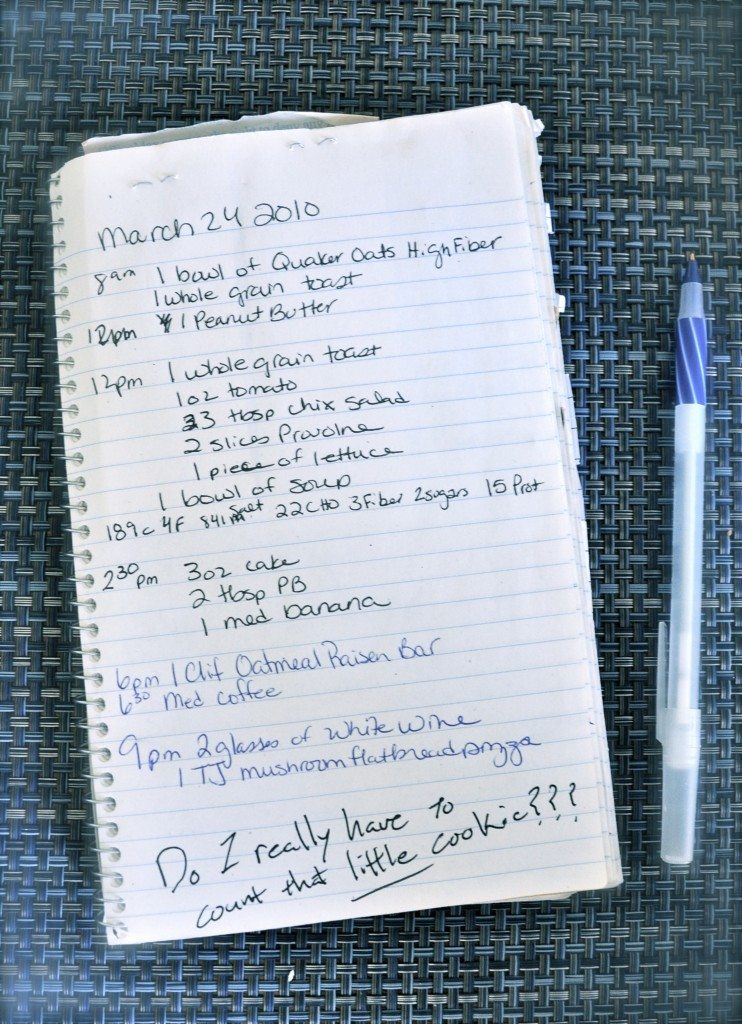 March 24 2010
8am 1 bowl of Quaker Oats High Fiber
1 whole grain toast
12pm 1 Peanut Butter
12pm 1 whole grain toast
1 oz tomato
3 tbsp chix salad
2 slices Provolne
1 piece of lettuce
1 bowl of soup
189c 4F 841m salt 22CHO 3Fiber 2sugars 15 Prot
2:30 pm 3oz cake
2 tbsp PB
1 med banana
6pm 1 Clif Oatmeal Raisen Bar
6:30 Med coffee
9pm 2 glasses of white wine
1 TJ mushroom flatbread pizza
Do I really have to
count that little cookie???